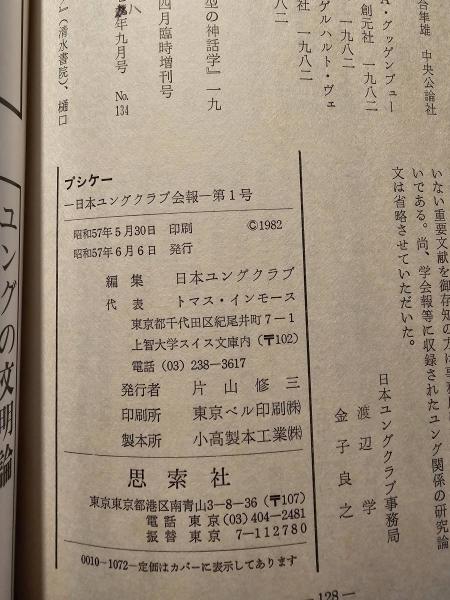 合隼雄 中央公論社
A・グッゲンビュー
創元社 一九八二
ゲルハルト・ヴェ
社 一九八二
八二
型の神話学』一九
四月臨時増刊号
年九月号 No.134
』(清水書院)、樋口
いない重要文献を御存知の方は事務局
いである。尚、学会報等に収録されたユング関係の研究論
文は省略させていただいた。
日本ユングクラブ事務局
渡辺 学
金子良之
プシケー
―日本ユングクラブ会報―第1号
昭和57年5月30日 印刷
©1982
昭和57年6月6日 発行
編集 日本ユングクラブ
代表 トマス・インモース
東京都千代田区紀尾井町7-1
上智大学スイス文庫内(〒102)
電話(03)238-3617
発行者 片山修三
印刷所 東京ベル印刷㈱
製本所 小高製本工業㈱
思索社
東京東京都港区南青山3-8-36(〒107)
電話 東京(03)404-2481
振替 東京 7-112780
0010-1072-定価はカバーに表示してあります
―128―
ユングの文明論